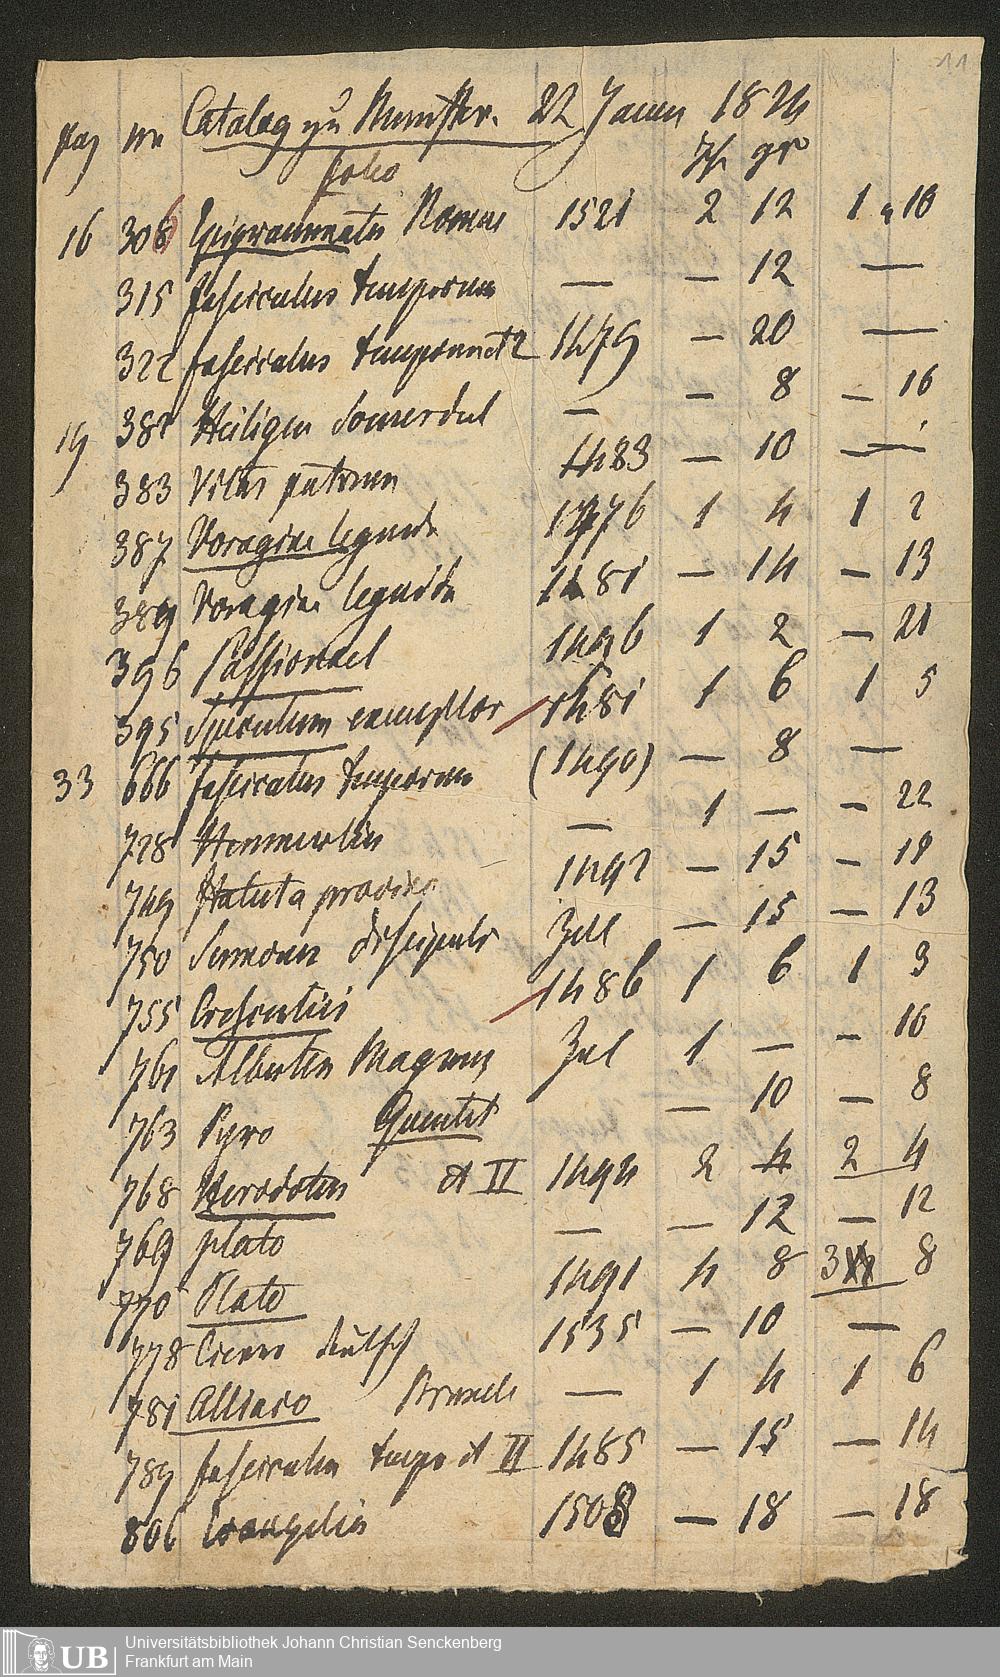 11
pag nr Catalog zu Munster. 22 Januar 1824
folio gr
16 308 Epigrammata Romae 1521 2 12 1 " 10
315 fasciculus temporum — — 12 —
322 fasciculus temporum et 2 1479 — 20 —
19 381 Heiligen Somerdeel — — 8 — 16
383 Vitas patrum 1483 — 10 — —
387 Voragine legenda 1476 1 4 1 2
389 Voragine legenda 1481 — 14 — 13
396 Passionael 1496 1 2 — 21
395 Speculum exemplor 1481 1 6 1 5
33 666 fasciculus temporum (1490) — 8 —
728 Hemmerlin — 1 — — 22
749 Statuta provinc 1492 — 15 — 19
750 Sermones discipuli Zell — 15 — 13
755 Crescentiis 1486 1 6 1 3
761 Albertus Magnus Zel 1 — — 16
763 Pyro Quentel — 10 — 8
768 Herodotus et II 1494 2 4 2 4
769 plato — — 12 — 12
770 Plato 1491 4 8 3 8
778 Cicero deutsch 1535 — 10 —
781 Alliaco Brussels — 1 4 1 6
789 fasciculus tempo et II 1485 — 15 — 14
806 Evangelia 1508 — 18 — 18
UB
Universitätsbibliothek Johann Christian Senckenberg
Frankfurt am Main